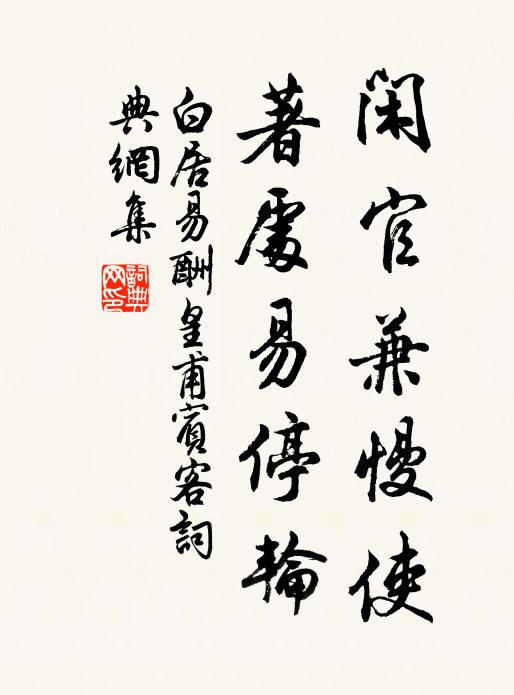 閑官兼慢使
著處易停輪
白居易酬皇甫賓客詞
典網集
詞典网印